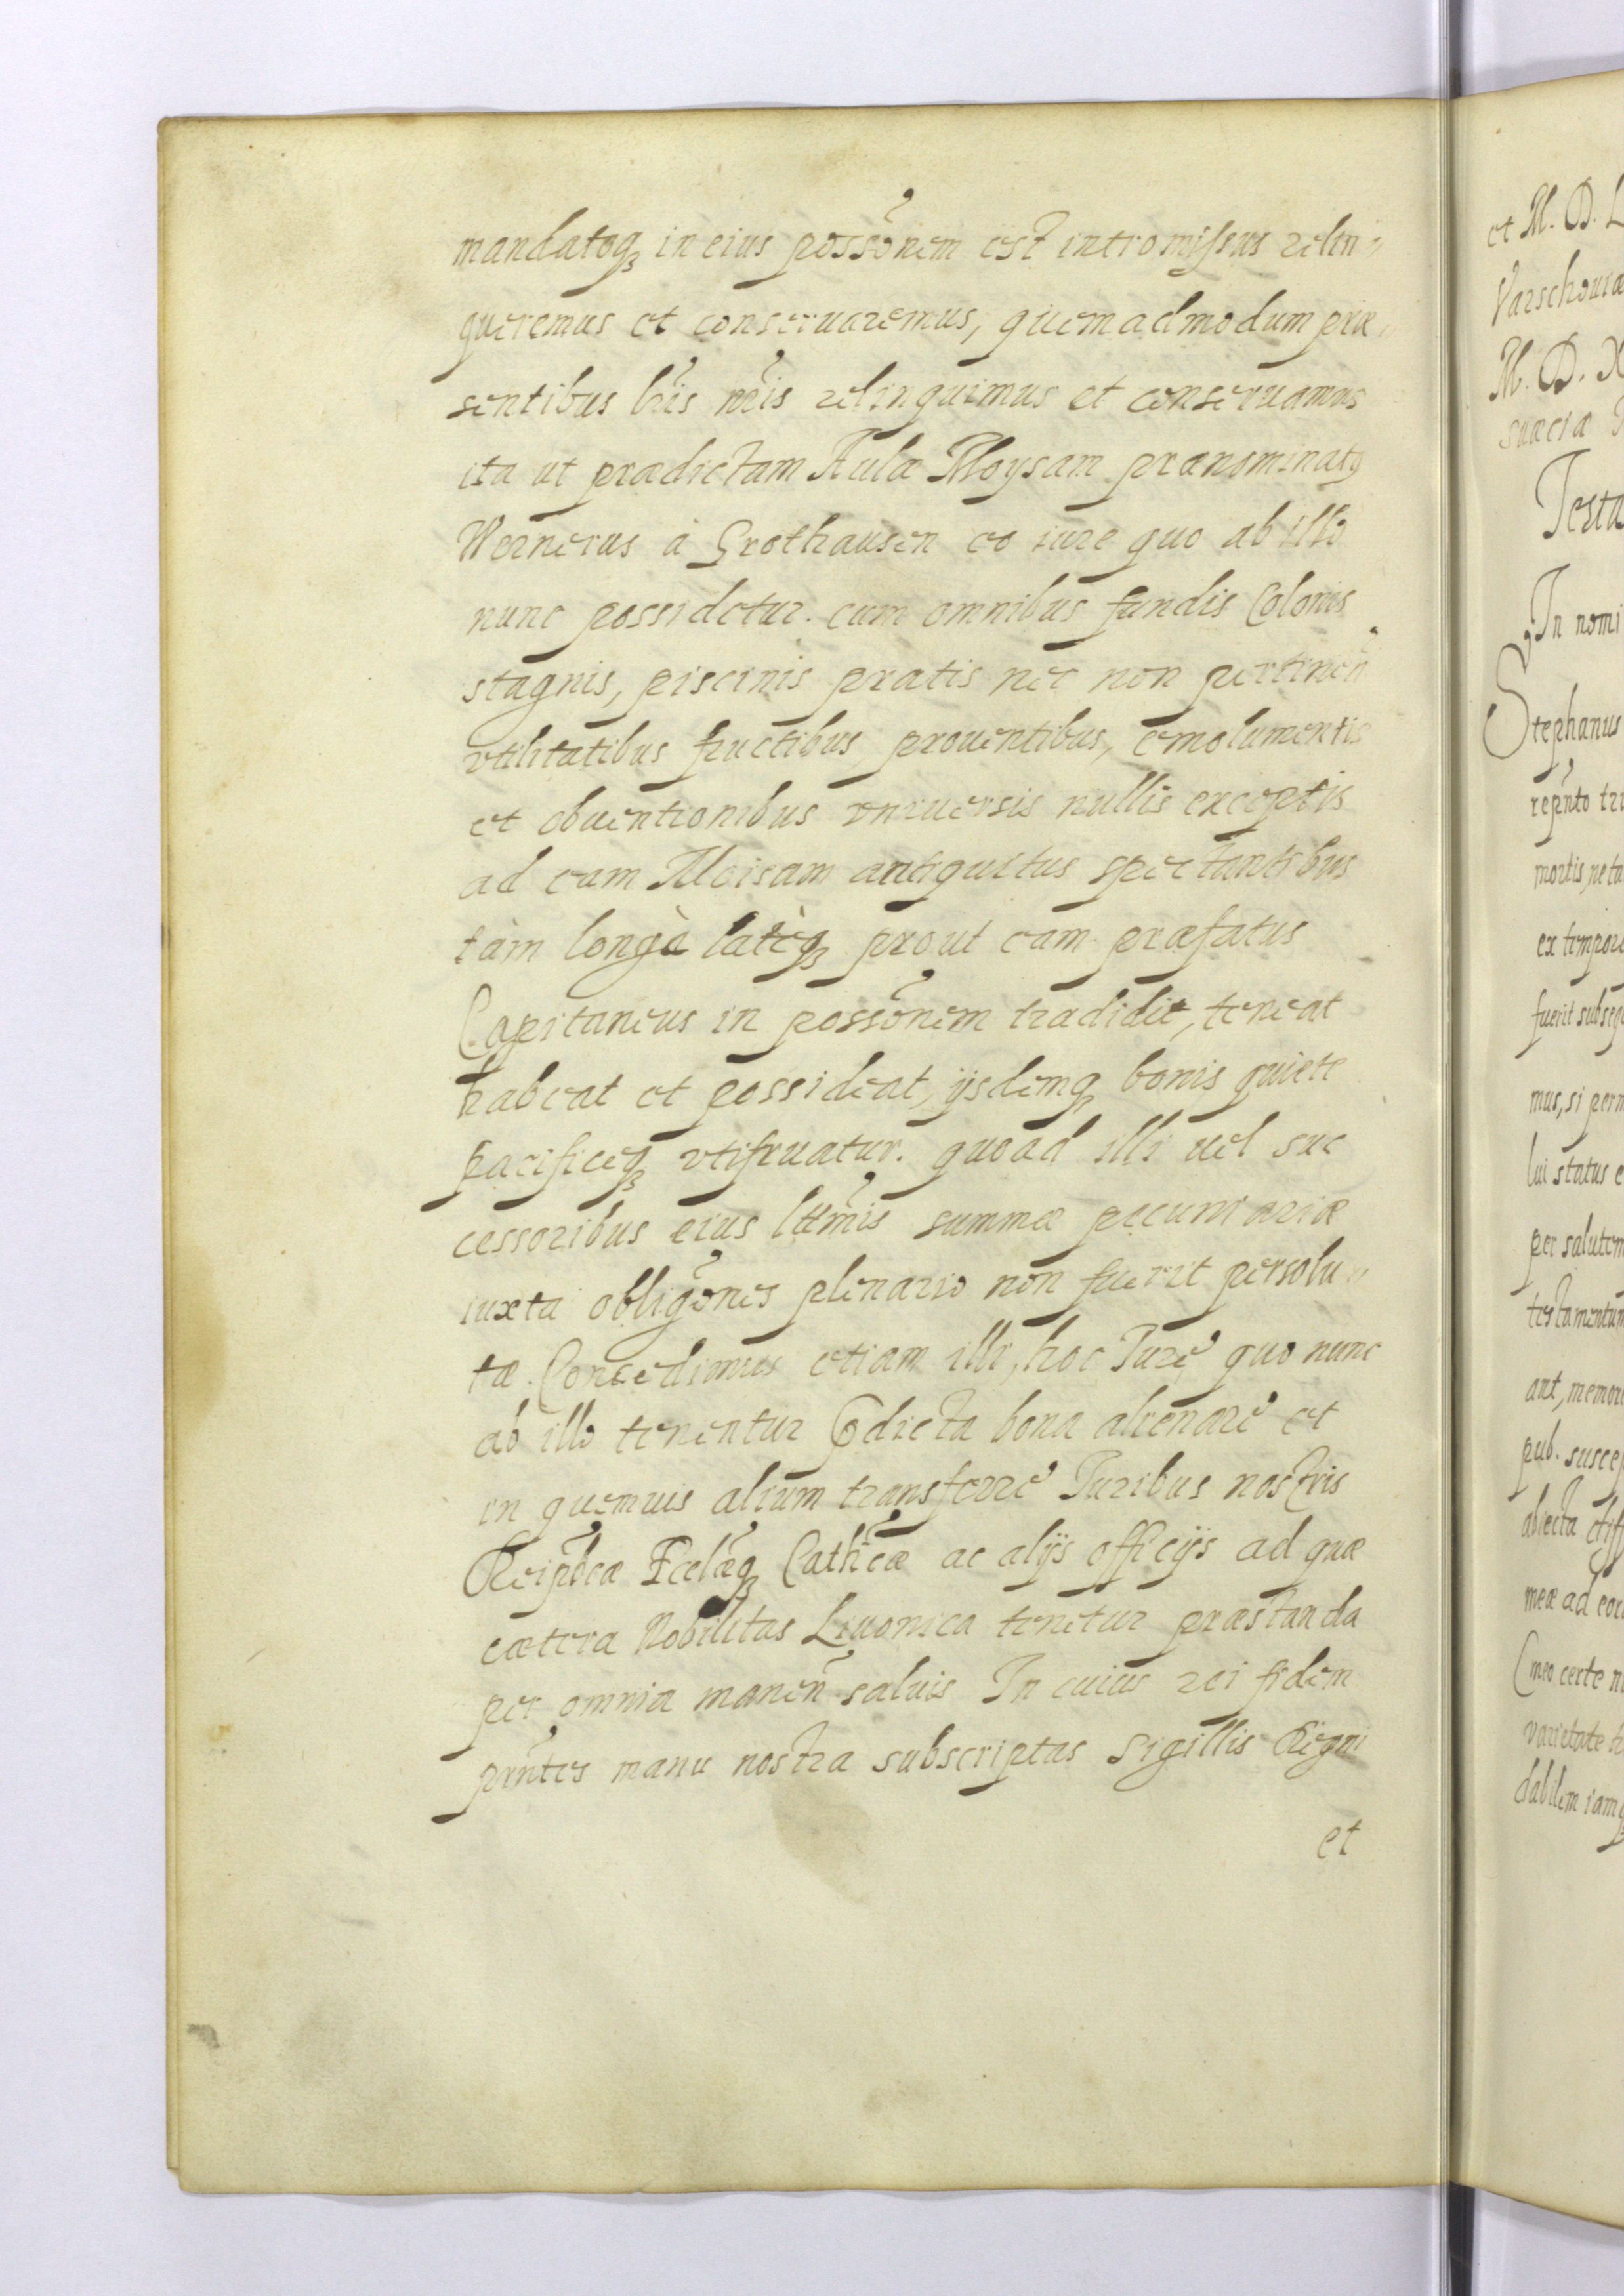 mandatoq₃ in eius possõnem est intromissus relin„
queremus et conseruaremus, quemadmodum præ„
sentibus lr̃is nr̃is relinquimus et conseruamus
ita ut prædictam Aulæ Moysam prænominatꝯ
Wernerus à Grothausen eo iure quo ab illo
nunc possidetur. cum omnibus fundis Colonis
stagnis, piscinis pratis nec non pertineñ
vtilitatibus fructibus prouentibus, emolumentis
et obuentionibus vniuersis nullis exceptis
ad eam Moisam antiquitus spectantibus
tàm longè latèq₃ prout eam præfatus
Capitaneus in possõnem tradidit, teneat
habeat et possideat, ijsdemq₃ bonis quiete
pacificeq₃ vtifruatur. quoad illi uel suc
cessoribus eius lttm̃is summæ pecuniariæ
iuxta obligõnes plenario non fuerit persolu„
tæ. Concedimus etiam illi, hoc Iure, quo nunc
ab illo tenentur p̃dicta bona alienare et
in quemuis alium transferre Iuribus nostris
Reip̃dcæ Ecclæq₃ Cathcæ ac alijs officijs ad quæ
cætera Nobilitas Liuonica tenetur præstanda
per omnia maneñ saluis In cuius rei fidem
pñtes manu nostra subscriptas Sigillis Regni
et
et M. D. L
Varschouiæ
M. D. X
suæciæ
Testa
In nomi
Stephanus
repñto
mortis,
ex tempore
fuerit subseq
mus, si perm
lui status e
per salutem
testamentum
ant, memor
pub. suscep
abiecta
meæ ad eor
meo certe
varietate
dabilem iam